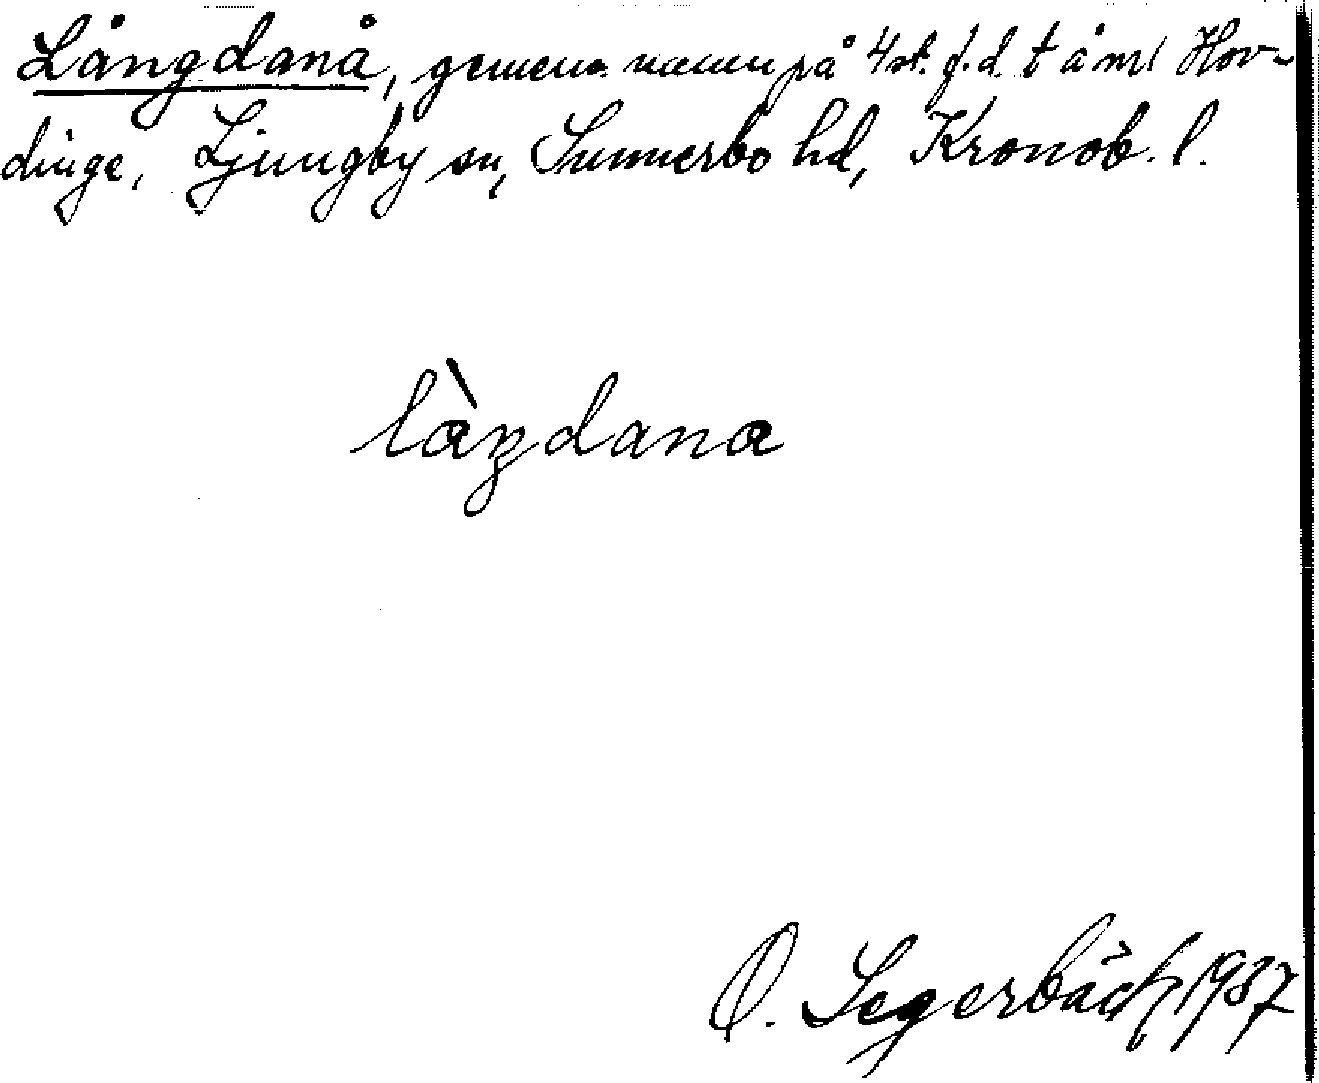 Långdanå, gemens. namn på 4 st. f.d. t å m/ Hov-
dinge, Ljungby sn, Sunnerbo hd, Kronob. l.
làŋdana
O. Segerbäck, 1937